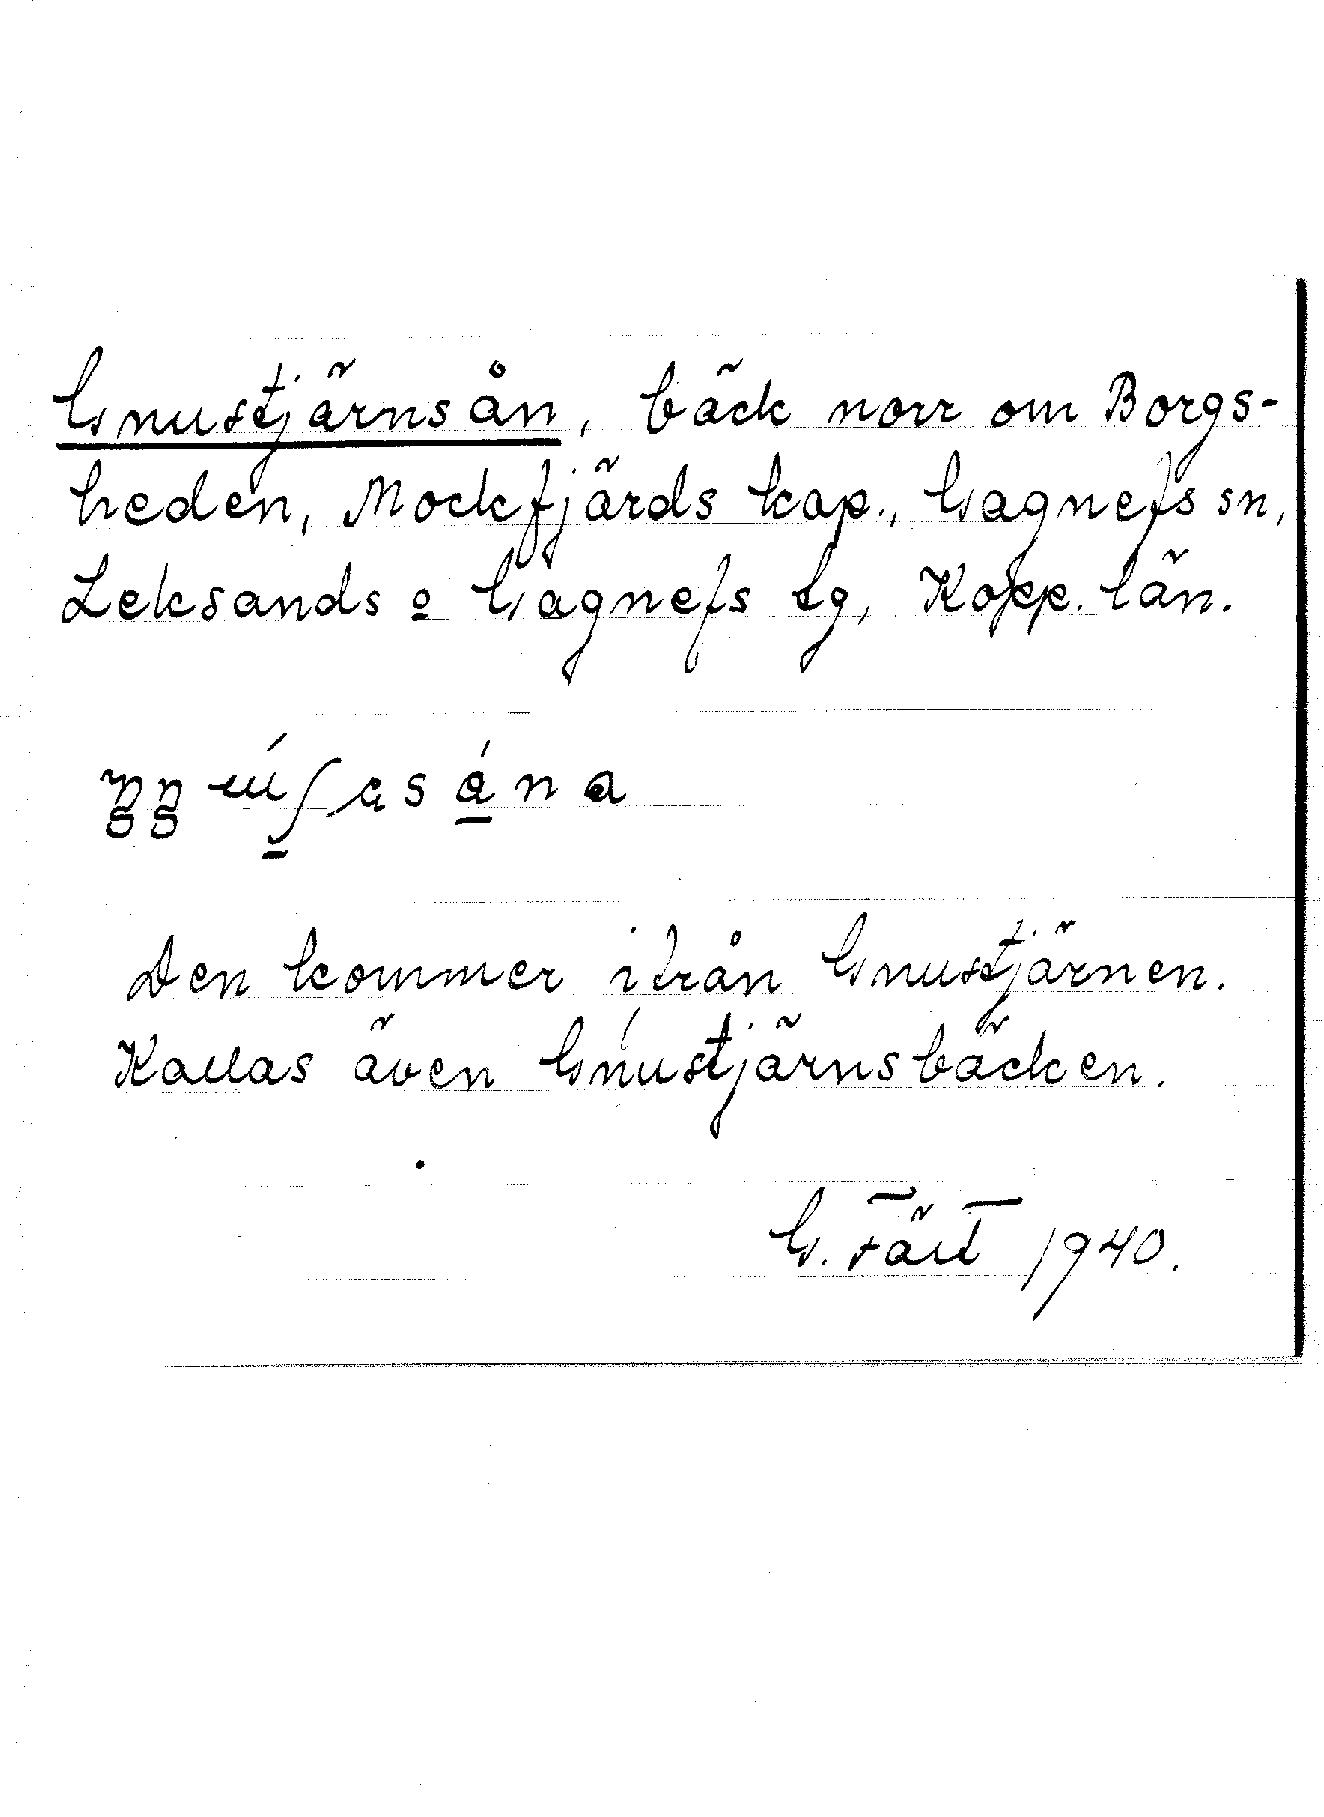 Gnustjärnsån, bäck norr om Borgs-
heden, Mockfjärds kap., Gagnefs sn,
Leksands o Gagnefs tg, Kopp. län.
Den kommer ifrån Gnustjärnen.
Kallas även Gnustjärnsbäcken.
G. Fält 1940.